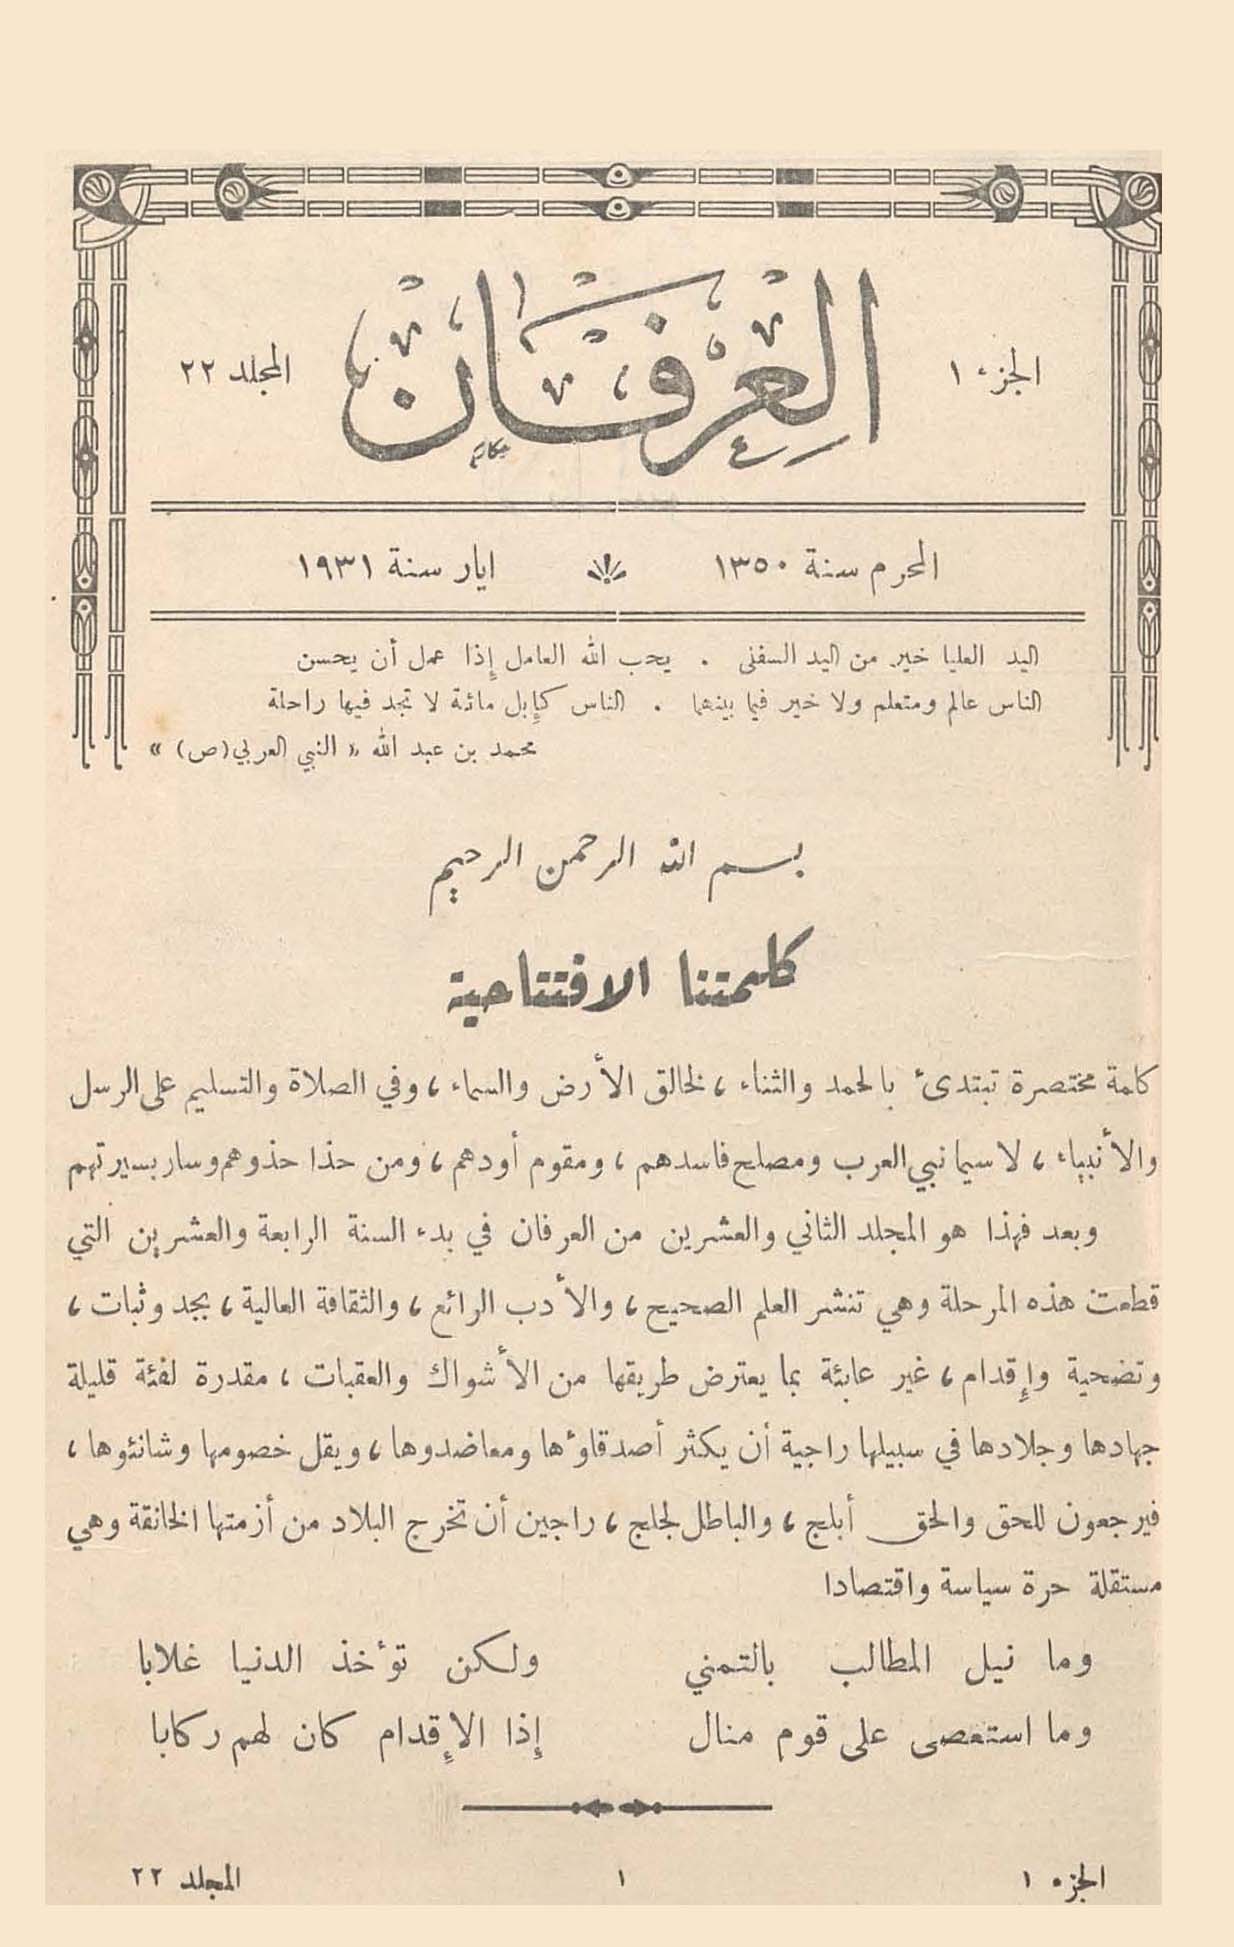 الجزء ١
العرفان
المجلد ٢٢
المحرم سنة ١٣٥٠
ايار سنة ١٩٣١
اليد العليا خير من اليد السفلى . يحب الله العامل إذا عمل أن يحسن
الناس عالم ومتعلم ولا خير فيما بينهما . الناس كإبل مائة لا تجد فيها راحلة
محمد بن عبد الله « النبي العربي (ص) »
بسم الله الرحمن الرحيم
كلمتنا الافتتاحية
كلمة مختصرة تبتدئ بالحمد والثناء ، لخالق الأرض والسماء ، وفي الصلاة والتسليم على الرسل
والأنبياء ، لا سيما نبي العرب ومصلح فاسدهم ، ومقوم أودهم ، ومن حذا حذوهم وسار بسيرتهم
وبعد فهذا هو المجلد الثاني والعشرين من العرفان في بدء السنة الرابعة والعشرين التي
قطعت هذه المرحلة وهي تنشر العلم الصحيح ، والأدب الرائع ، والثقافة العالية ، بجد وثبات ،
وتضحية وإقدام ، غير عابئة بما يعترض طريقها من الأشواك والعقبات ، مقدرة لفئة قليلة
جهادها وجلادها في سبيلها راجية أن يكثر أصدقاؤها ومعاضدوها ، ويقل خصومها وشانئوها ،
فيرجعون للحق والحق أبلج ، والباطل لجلج ، راجين أن تخرج البلاد من أزمتها الخانقة وهي
مستقلة حرة سياسة واقتصادا
وما نيل المطالب بالتمني ولكن تؤخذ الدنيا غلابا
وما استعصى على قوم منال إذا الإقدام كان لهم ركابا
الجزء ١
١
المجلد ٢٢